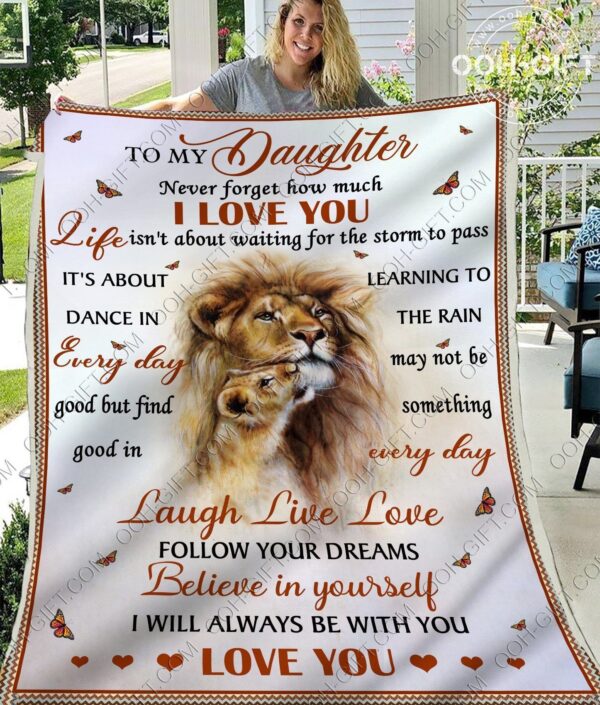 OOH-GIFT
TO MY Daughter
Never forget how much
I LOVE YOU
Life isn't about waiting for the storm to pass
IT'S ABOUT LEARNING TO
DANCE IN THE RAIN
Every day may not be
good but find something
good in every day
Laugh Live Love
FOLLOW YOUR DREAMS
Believe in yourself
I WILL ALWAYS BE WITH YOU
LOVE YOU
OOH-GIFT.COM